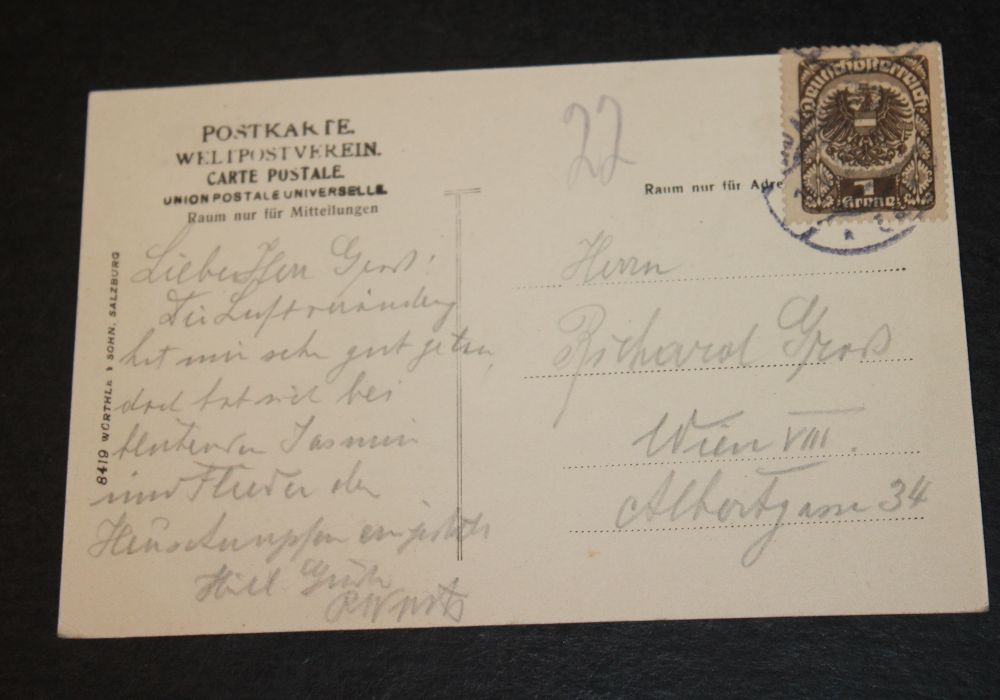 POSTKARTE.
WELTPOSTVEREIN.
CARTE POSTALE.
UNION POSTALE UNIVERSELLE.
Raum nur für Mitteilungen
8419 WÜRTHLE & SOHN, SALZBURG
Lieber Herr Groß!
Die Luftveränderung
hat mir sehr gut getan,
doch hat sich bei
blühenden Jasmin
und Flieder der
Heuschnupfen eingestellt
Herzl. Grüße
22
Raum nur für Adre
Deutschösterreich
1
Krone
Herrn
Richard Groß
Wien VIII.
Albertgasse 34